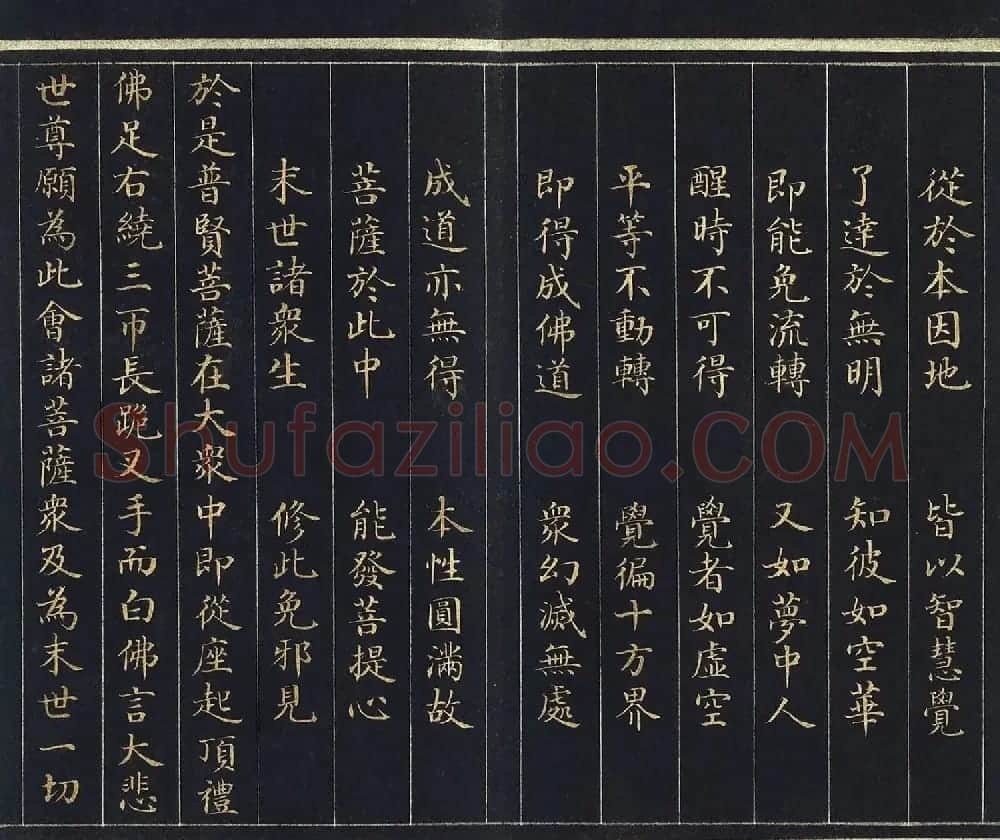 從於本因地 皆以智慧覺
了達於無明 知彼如空華
即能免流轉 又如夢中人
醒時不可得 覺者如虛空
平等不動轉 覺徧十方界
即得成佛道 衆幻滅無處
成道亦無得 本性圓滿故
菩薩於此中 能發菩提心
末世諸衆生 修此免邪見
於是普賢菩薩在大衆中即從座起頂禮
佛足右繞三帀長跪叉手而白佛言大悲
世尊願為此會諸菩薩衆及為末世一切
Shufaziliao.COM